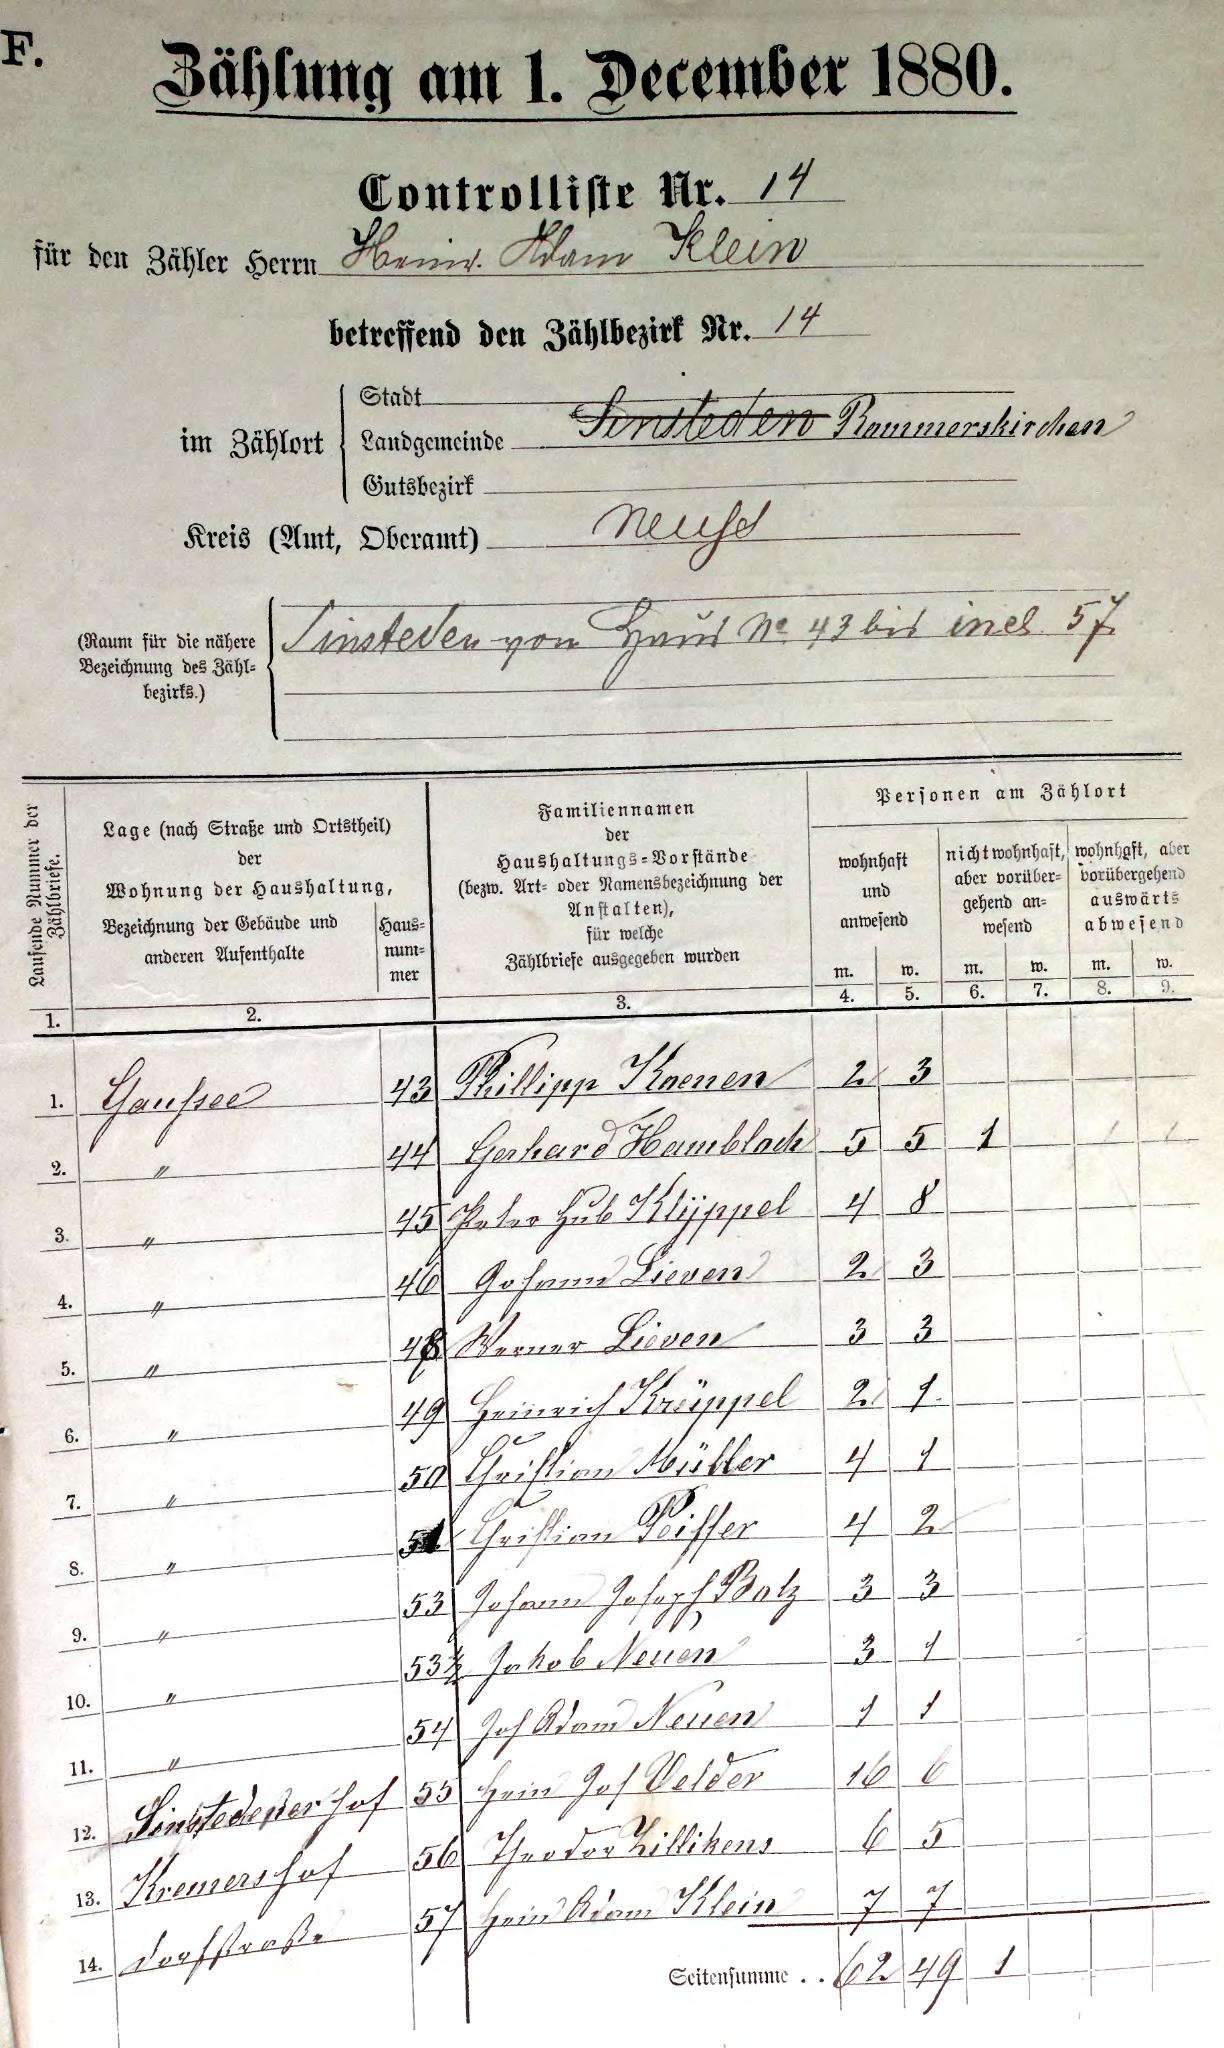 F.
Zählung am 1. December 1880.
Controlliste Nr. 14
für den Zähler Herrn Heinr. Adam Klein
betreffend den Zählbezirk Nr. 14
im Zählort
Stadt
Landgemeinde Sinsteden Rommerskirchen
Gutsbezirk
Kreis (Amt, Oberamt) Neuß
(Raum für die nähere Bezeichnung des Zähl-
bezirks.)
Sinsteden von Haus No 43 bis incl. 57
Laufende Nummer der Zählbriefe.
Lage (nach Straße und Ortstheil)
der
Wohnung der Haushaltung,
Bezeichnung der Gebäude und
anderen Aufenthalte
Haus-
num-
mer
Familiennamen
der
Haushaltungs-Vorstände
(bezw. Art- oder Namensbezeichnung der
Anstalten),
für welche
Zählbriefe ausgegeben wurden
Personen am Zählort
wohnhaft
und
anwesend
nichtwohnhaft,
aber vorüber-
gehend an-
wesend
wohnhaft, aber
vorübergehend
auswärts
abwesend
m. w. m. w. m. w.
1. 2. 3. 4. 5. 6. 7. 8. 9.
1. Chaussee 43 Phillipp Koenen 2 3
2. " 44 Gerhard Hambloch 5 5 1 1 1
3. " 45 Peter Hub Klüppel 4 8
4. " 46 Johann Lieven 2 3
5. " 48 Werner Lieven 3 3
6. " 49 Heinrich Krüppel 2 1
7. " 50 Christian Müller 4 1
8. " 51 Christian Peiffer 4 2
9. " 53 Johann Joseph Bolz 3 3
10. " 53½ Jakob Neuen 3 1
11. " 54 Jos Adam Neuen 1 1
12. Sinstedenerhof 55 Hein Jos Velder 16 6
13. Kremershof 56 Theodor Zillikens 6 5
14. Dorfstraße 57 Hein Adam Klein 7 7
Seitensumme . . 62 49 1